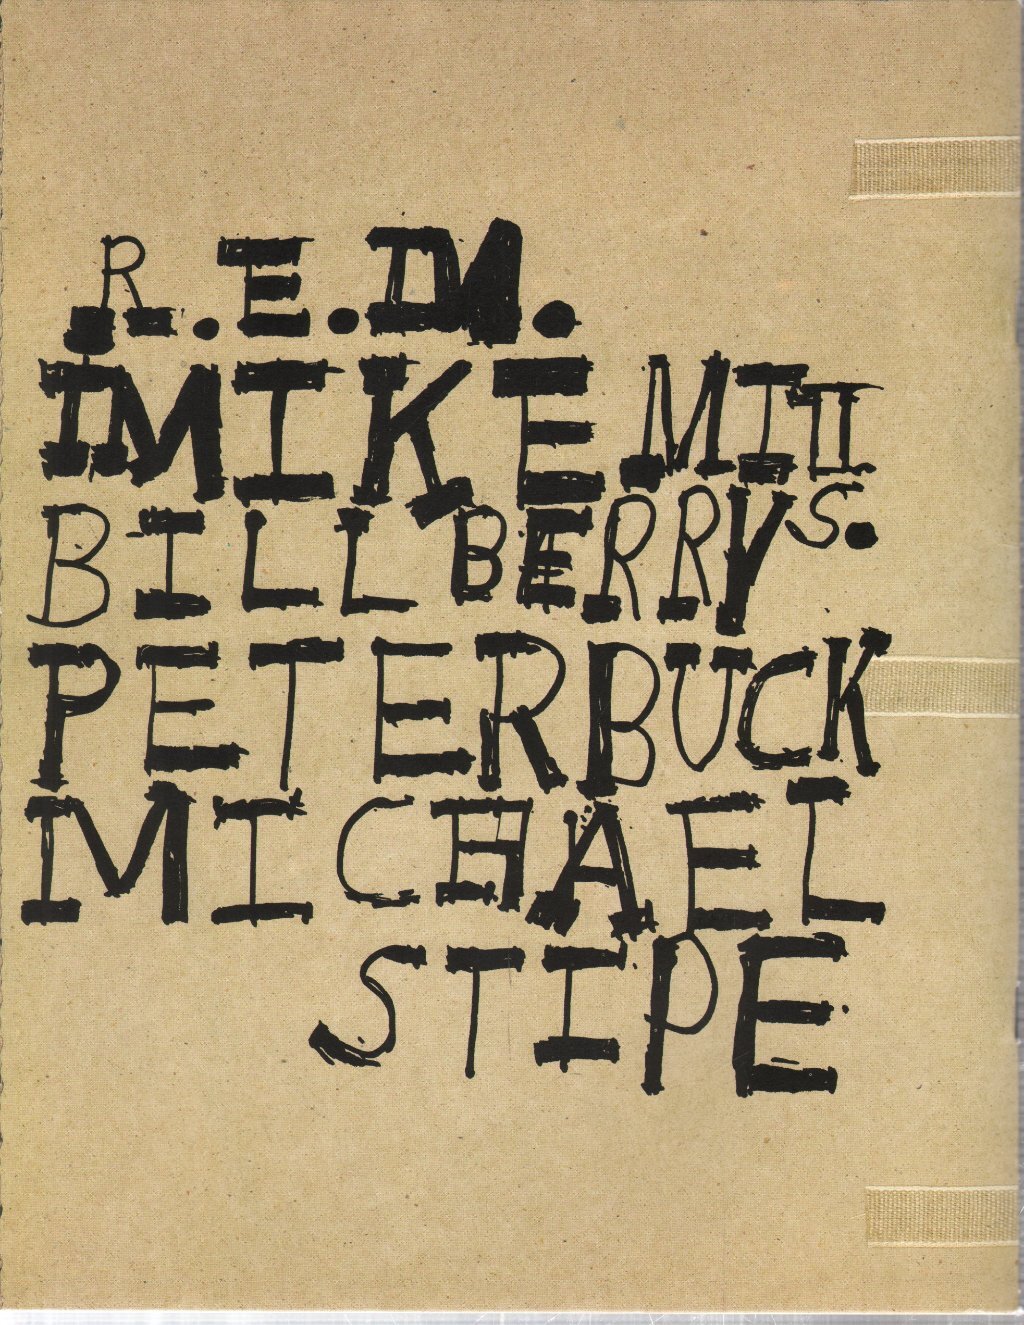 R.E.M.
MIKE MILLS.
BILL BERRY
PETER BUCK
MICHAEL
STIPE